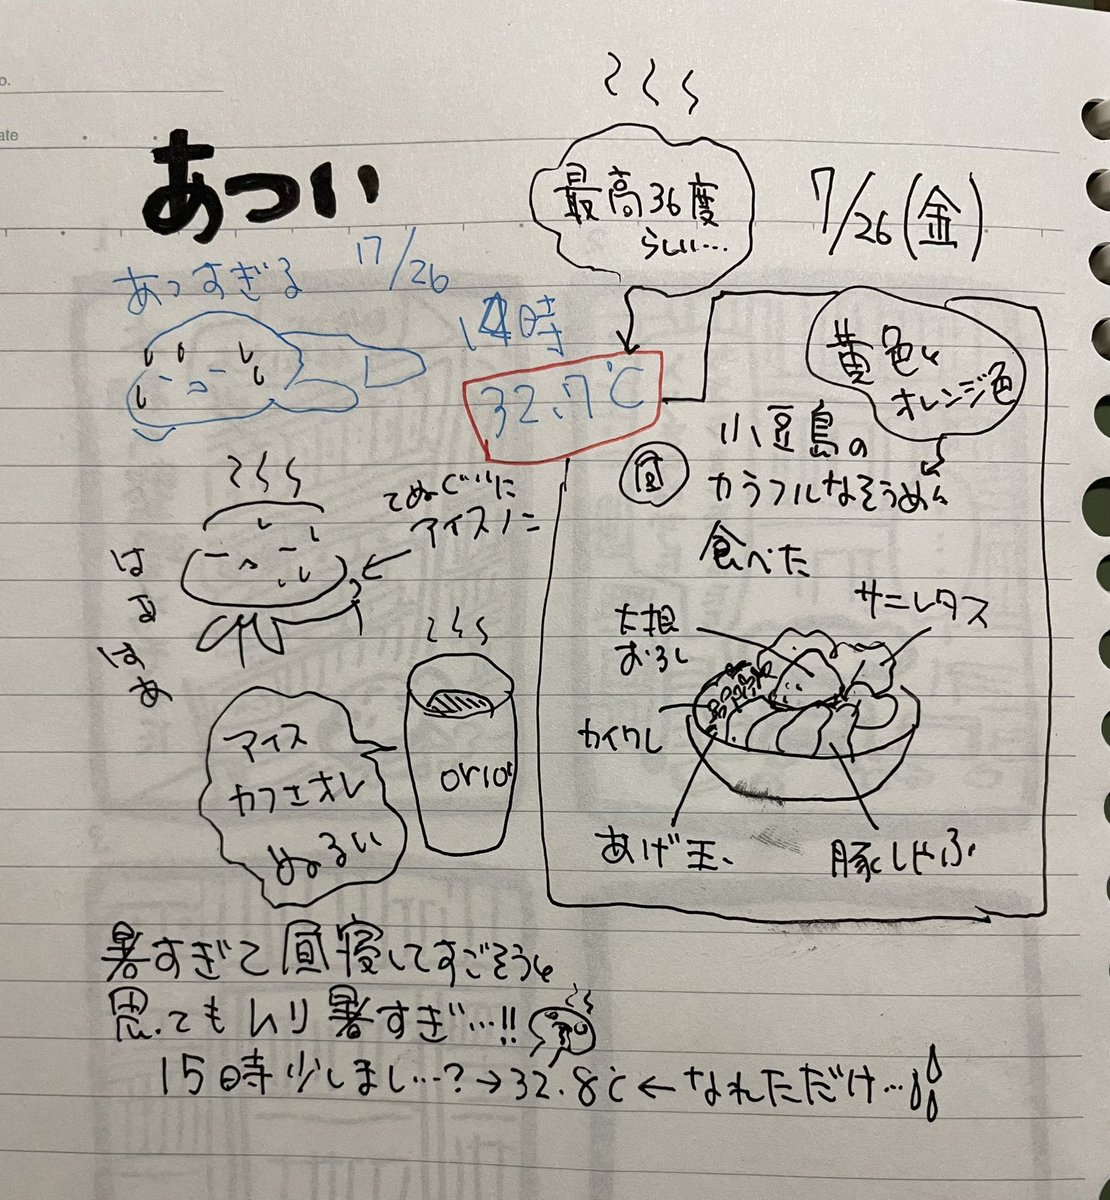 o.
ate
あつい
最高36度
らしい…
7/26(金)
あっすぎる
17/26
14時
32.7℃
黄色と
オレンジ色
昼
小豆島の
カラフルなそうめん
食べた
てぬぐいに
アイスノン
はぁはぁ
大根
おろし
サニーレタス
カイワレ
あげ玉
豚しゃぶ
アイス
カフェオレ
ぬるい
orio
暑すぎて昼寝してすごそうと
思ってもムリ暑すぎ…!!
15時少しまし…?→32.8℃←なれただけ…